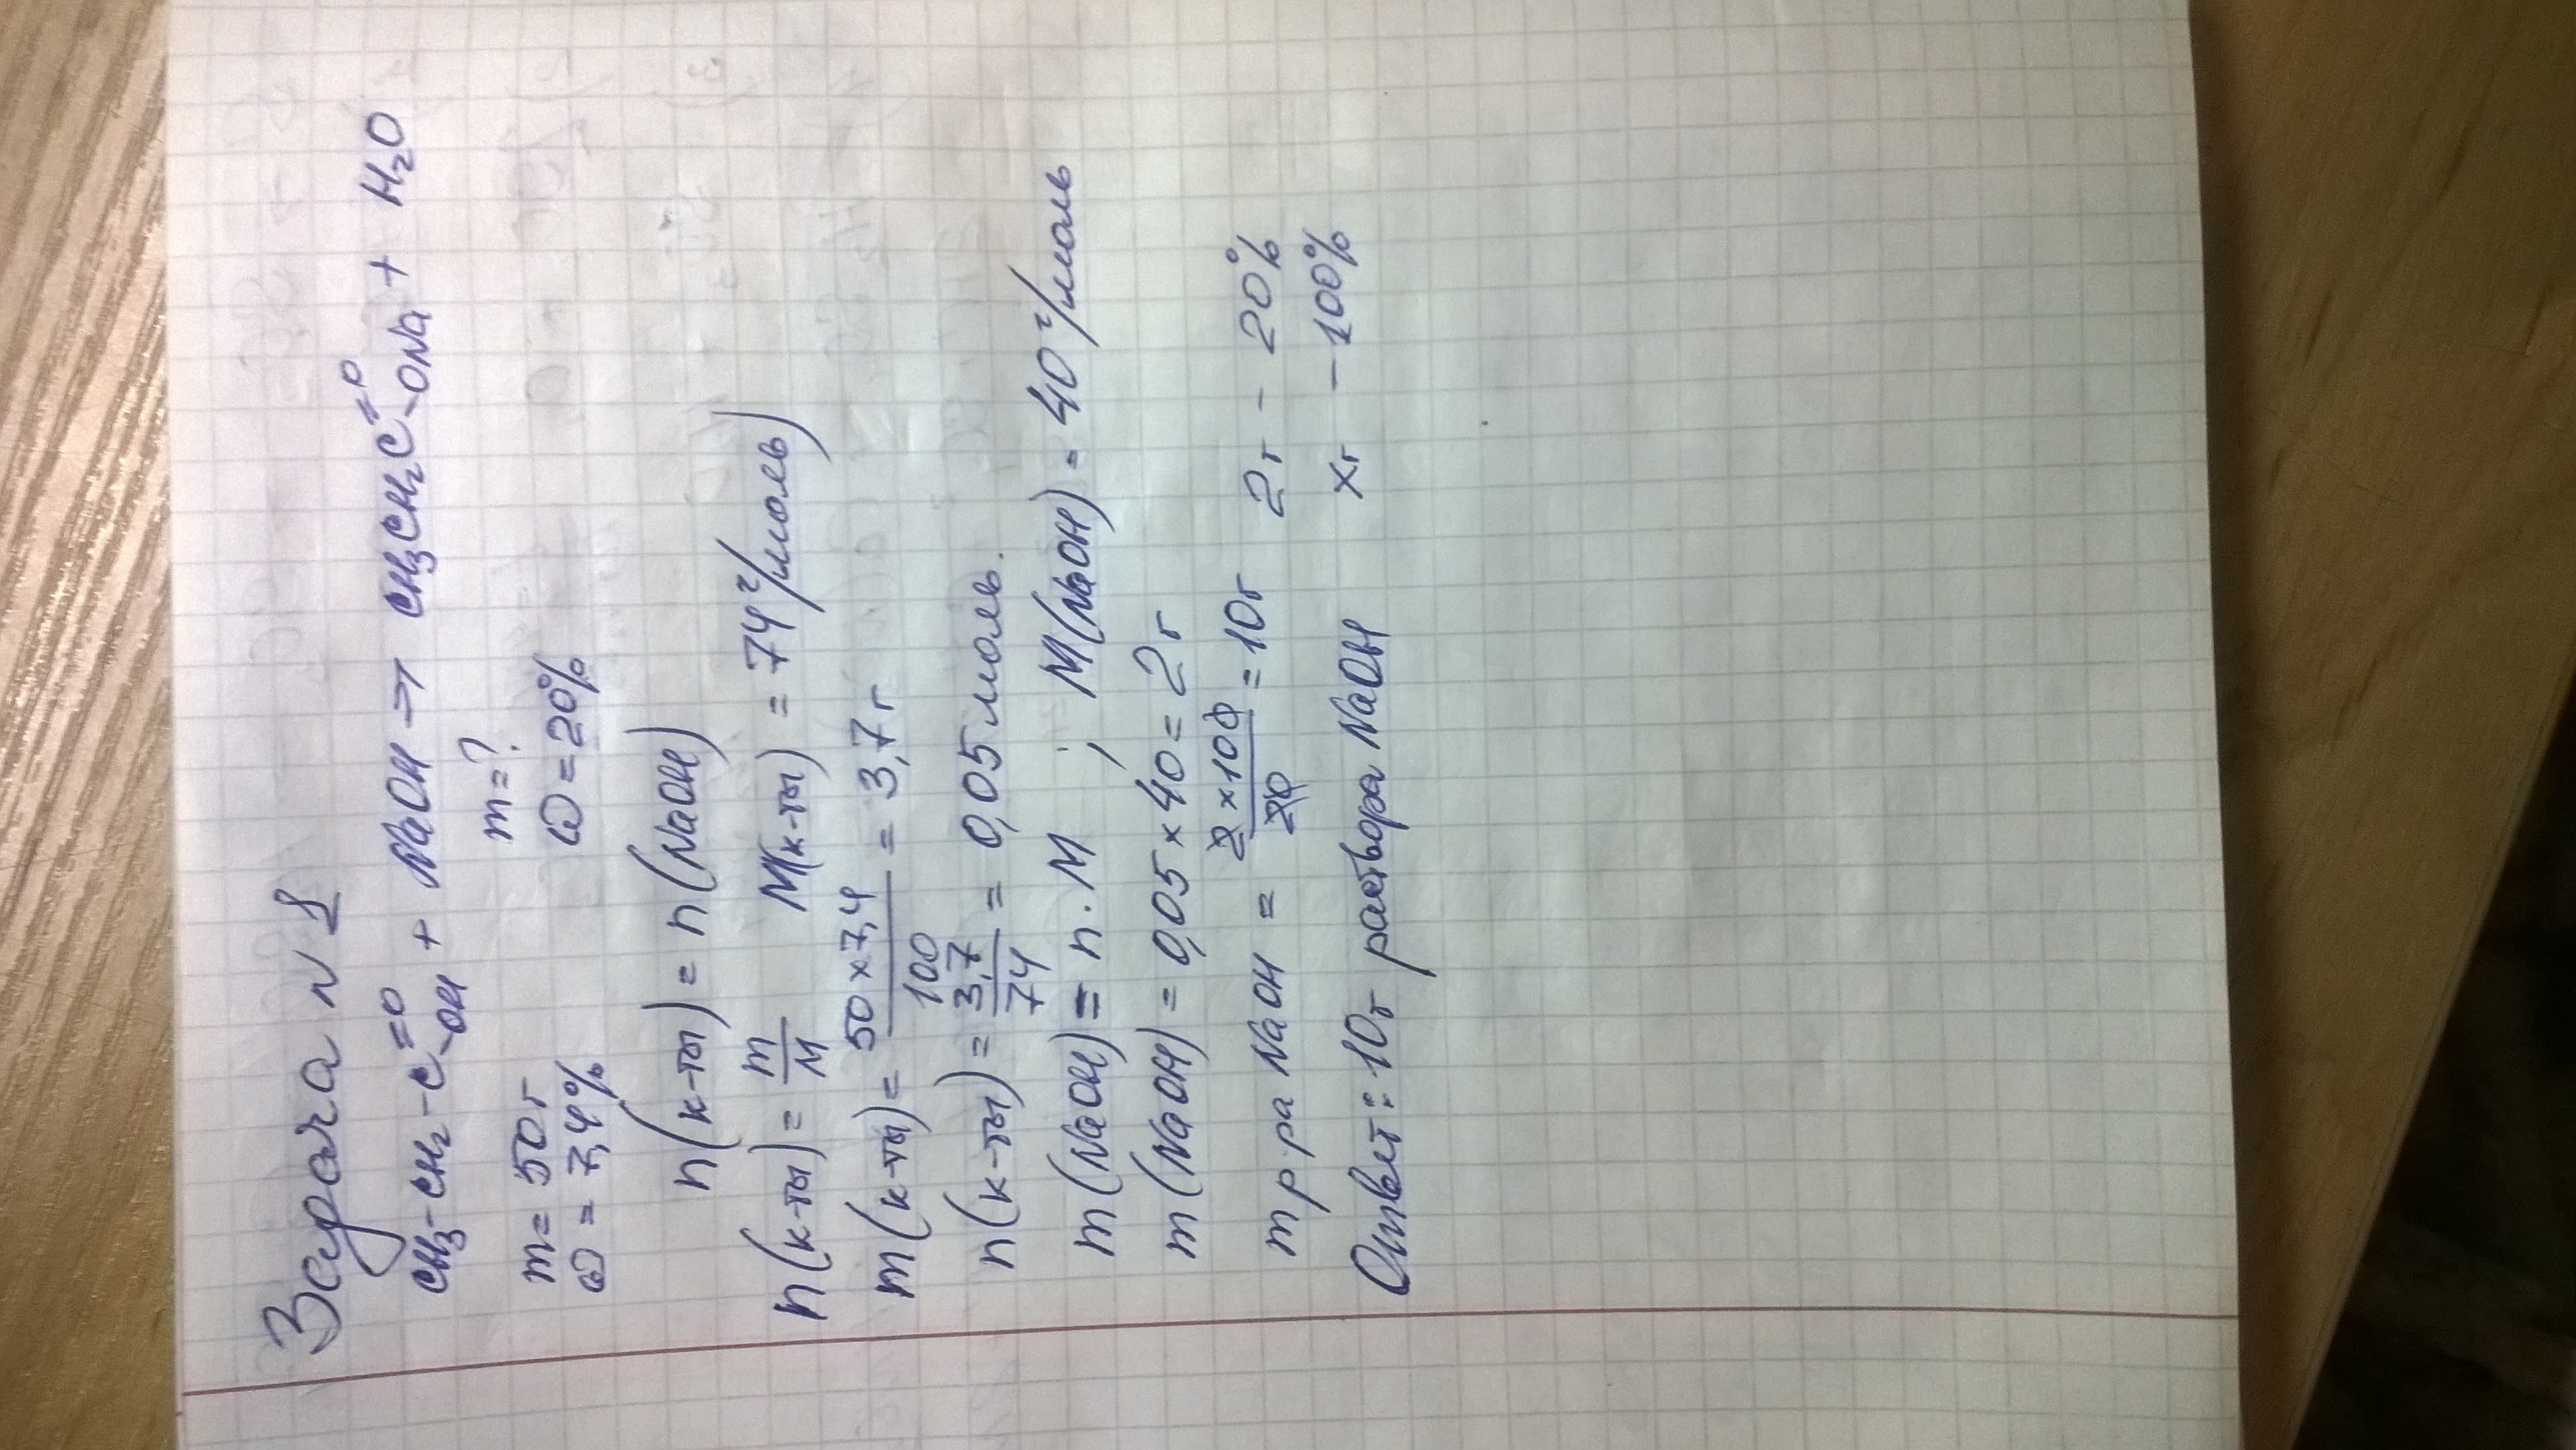 Задача N 1
CH3-CH2-C=O-OH + NaOH → CH3CH2C=O-ONa + H2O
m=?
m = 50г
ω = 7,4% ω = 20%
n(к-ты) = n(NaOH)
n(к-ты) = m/M M(к-ты) = 74 г/моль)
m(к-ты) = 50 x 7,4/100 = 3,7 г
n(к-ты) = 3,7/74 = 0,05 моль.
m(NaOH) = n · M ; M(NaOH) = 40 г/моль
m(NaOH) = 0,05 x 40 = 2 г
m р ра NaOH = 2 x 100/20 = 10г 2г - 20%
xг - 100%
Ответ: 10г раствора NaOH